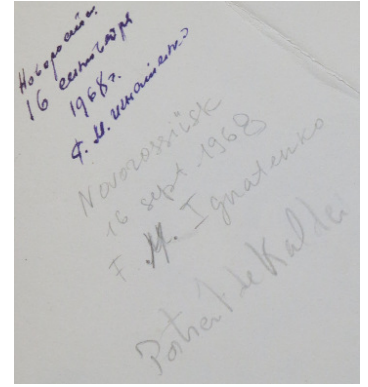 Новороссийск
16 сентября
1968г.
Ф. М. Игнатенко
Novorossiisk
16 sept. 1968
F. M. Ignatenko
Portrait de Kaldei